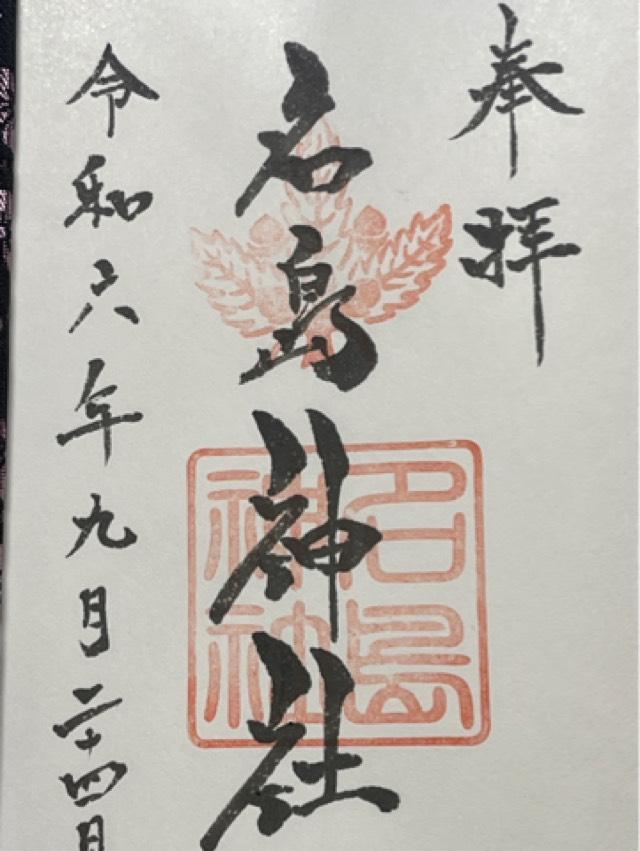 奉拝
名島神社
名島神社
令和六年九月二十四日